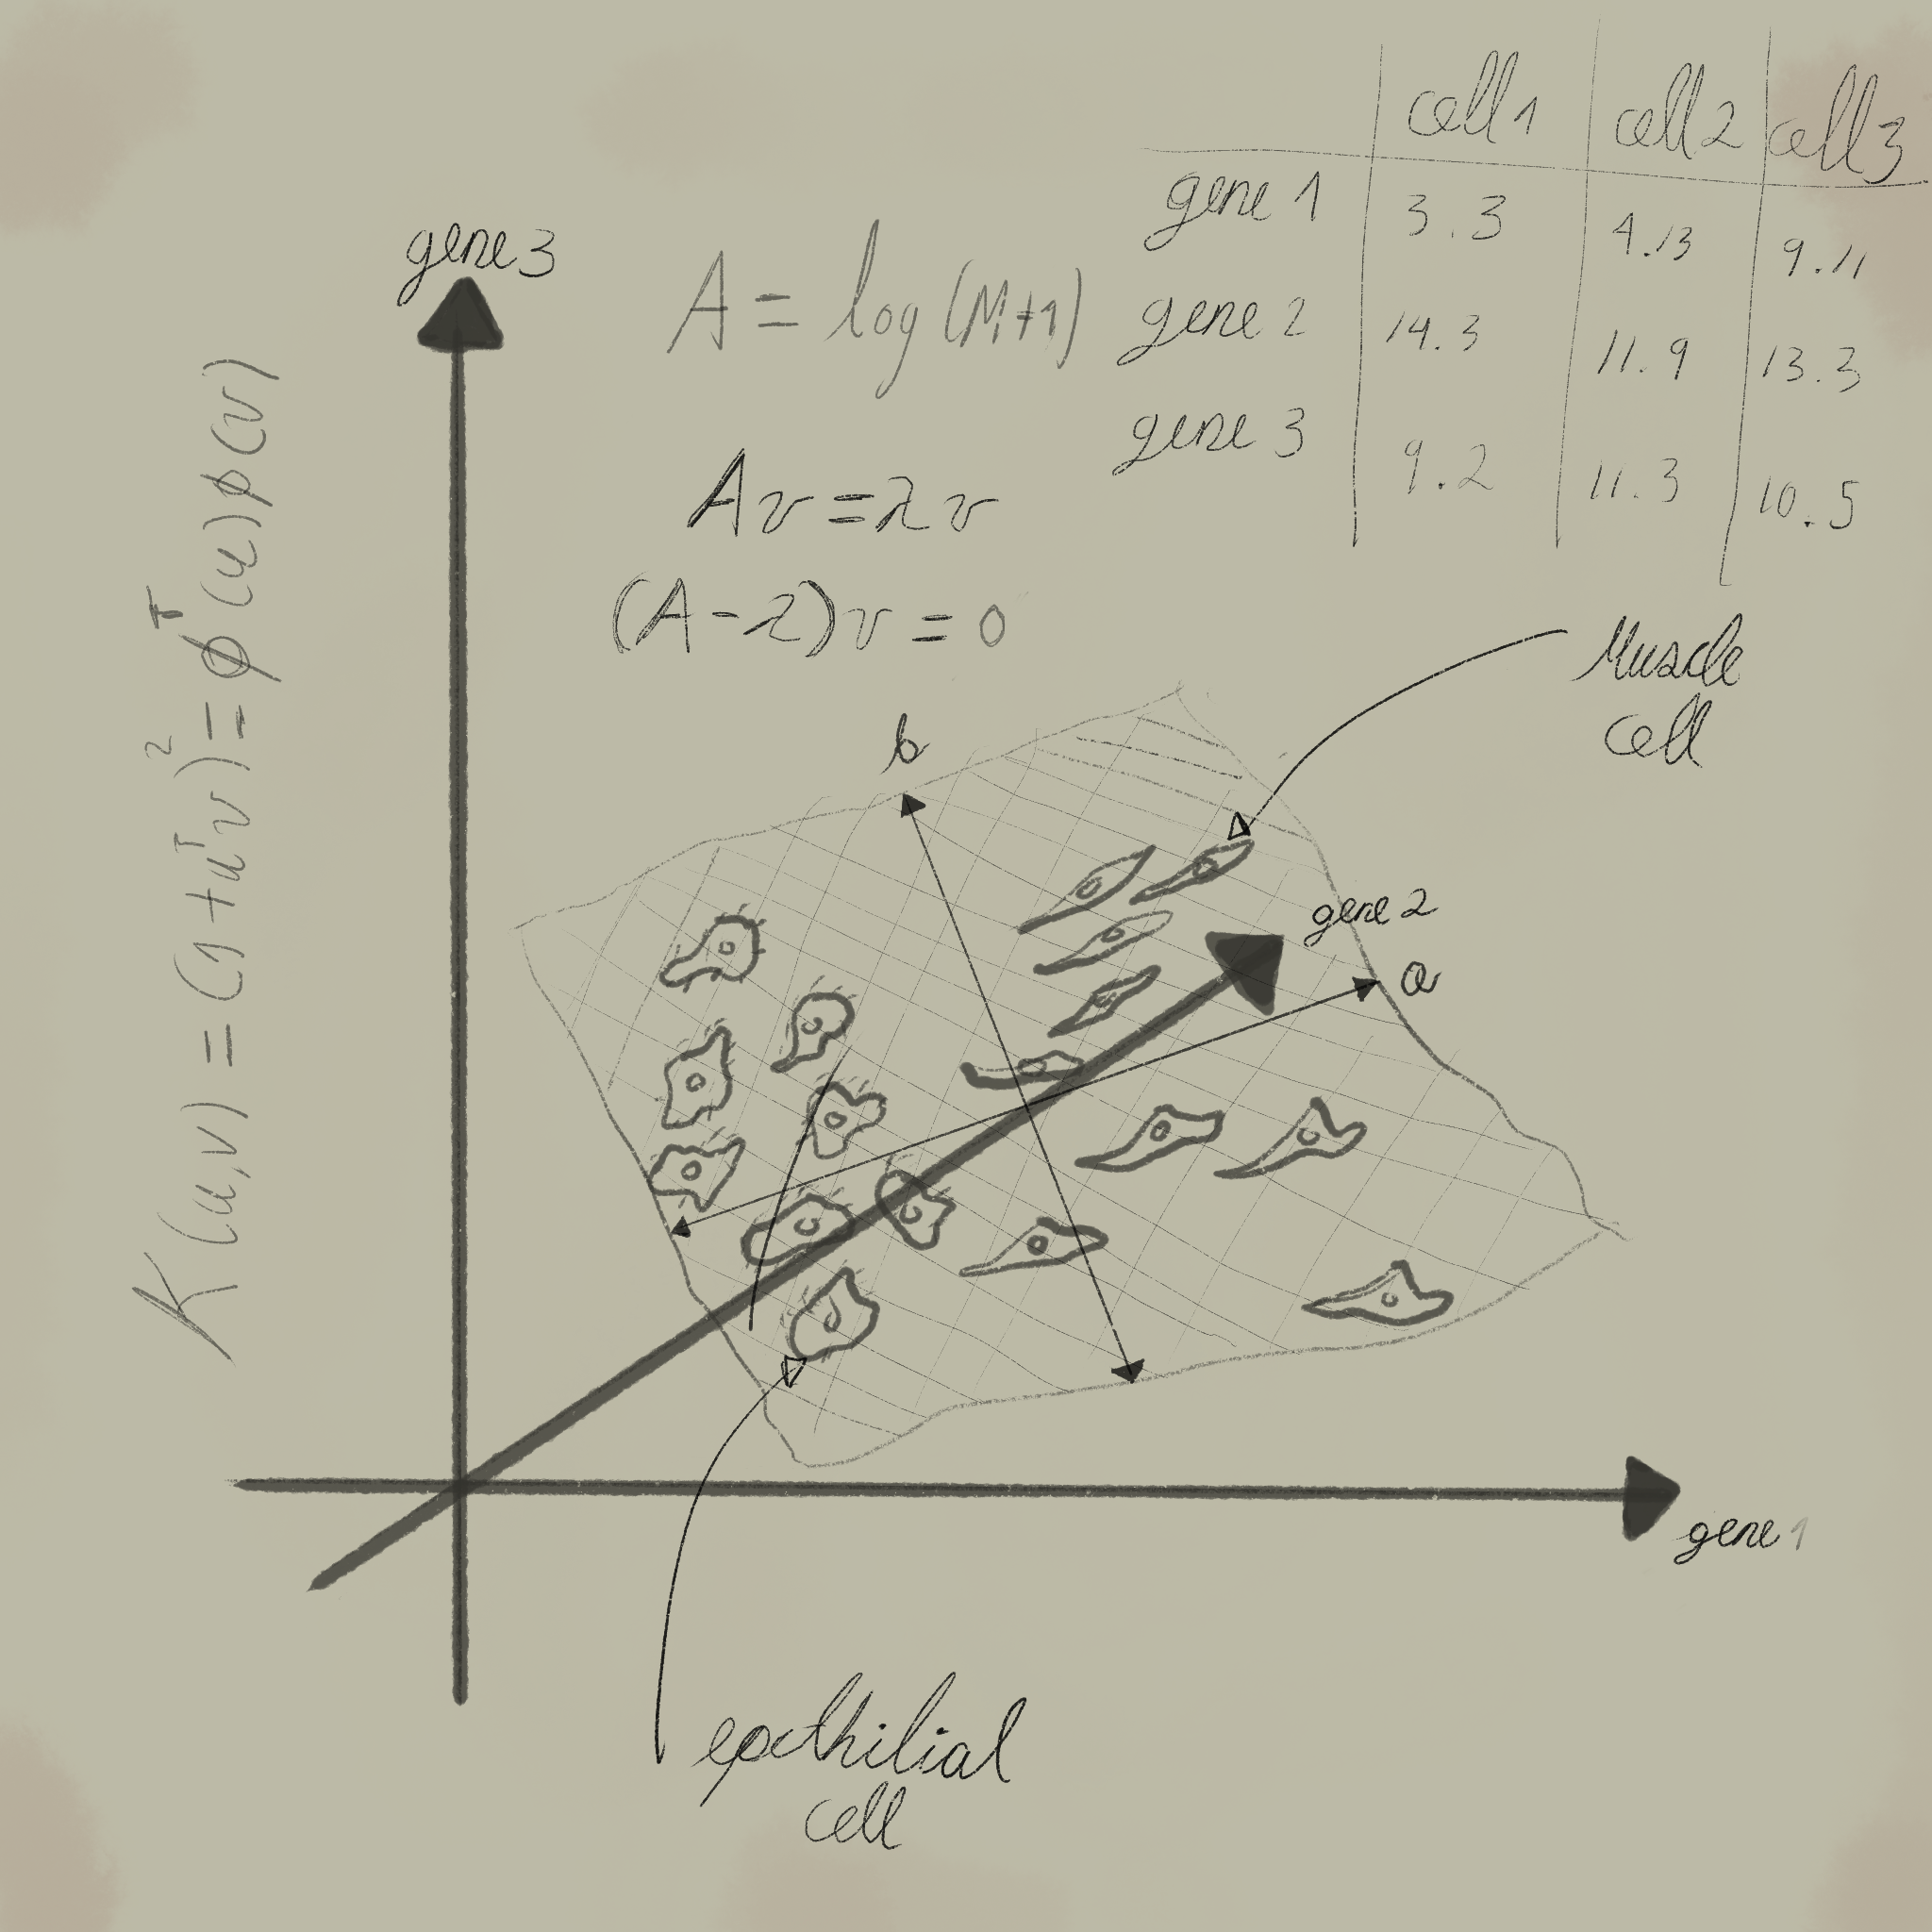 cell 1 cell 2 cell 3
gene 1 3.3 4.13 9.11
gene 2 14.3 11.9 13.3
gene 3 9.2 11.3 10.5
gene 3
A = log (M+1)
Av = λv
(A - λ)v = 0
K(u,v) = (1+uᵀv)² = ϕᵀ(u)ϕ(v)
Muscle
cell
b
gene 2
a
gene 1
epithilial
cell